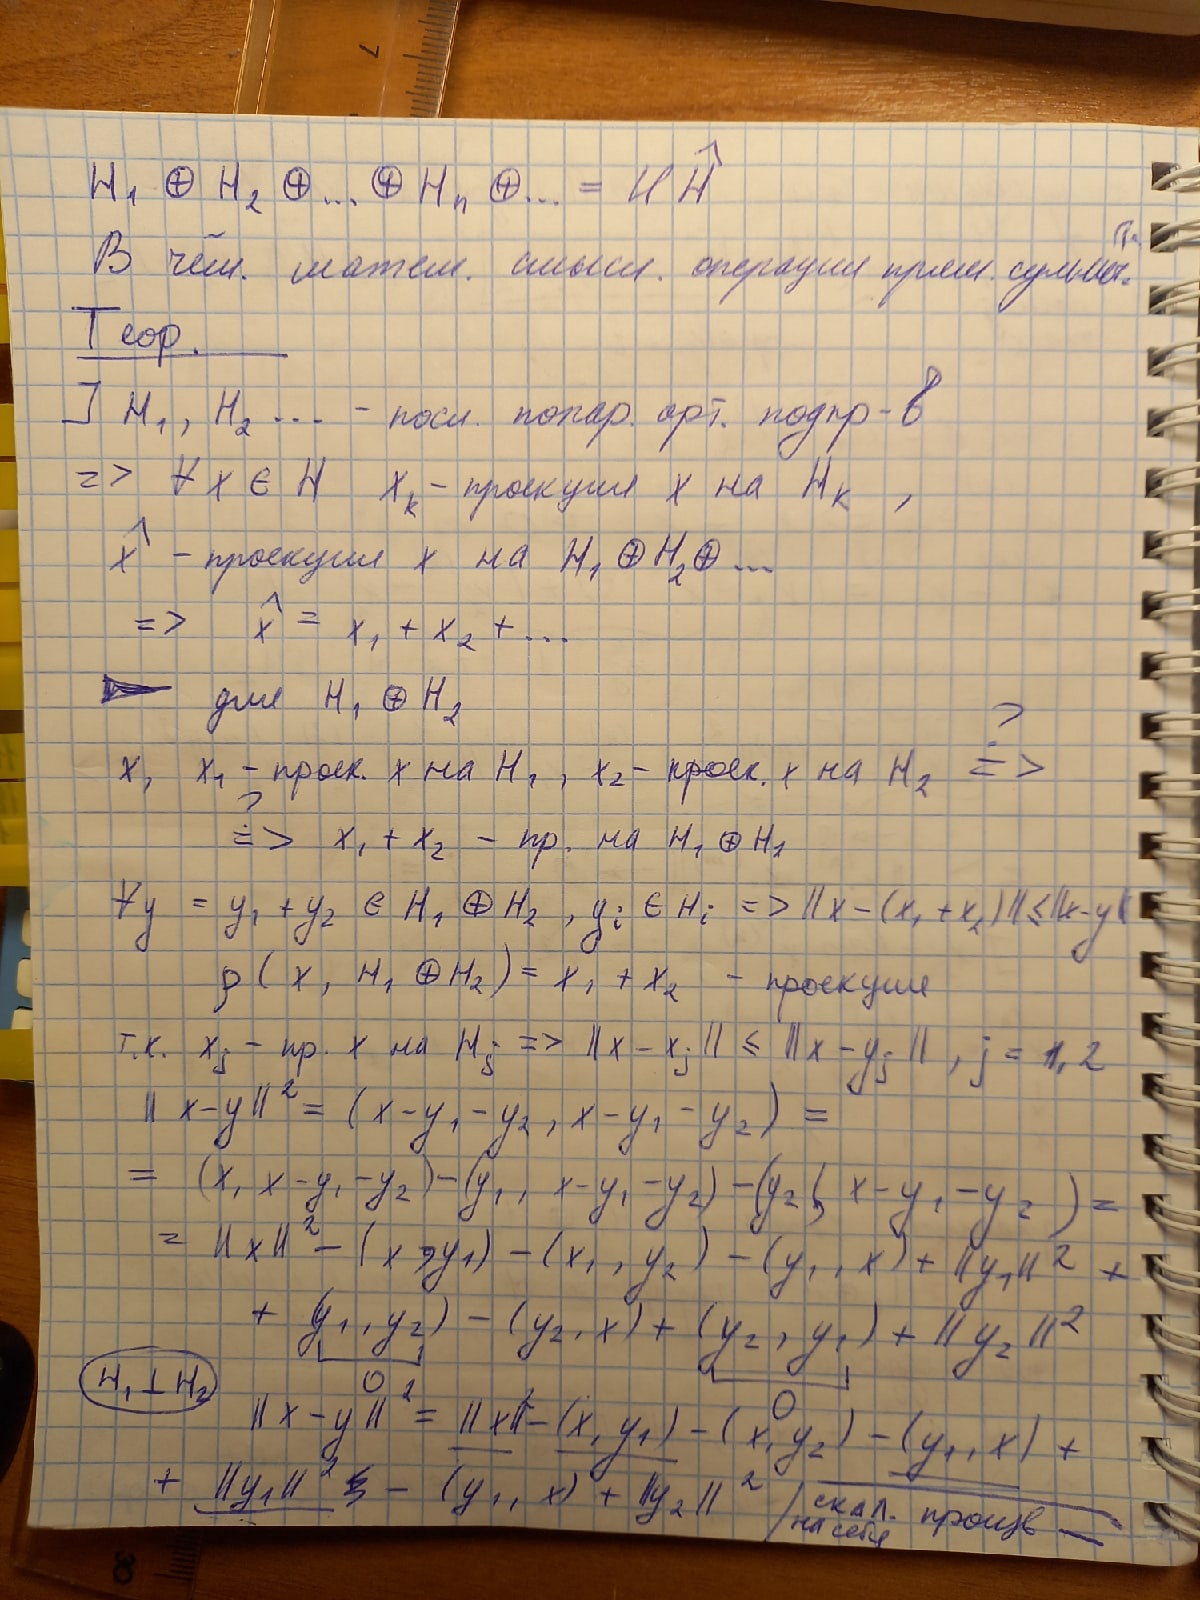 H₁ ⊕ H₂ ⊕ ... ⊕ Hₙ ⊕ ... = Ĥ
В чём. матем. смысл. операции прям. суммы.
Теор.
] H₁, H₂ ... - посл. попар. орт. подпр-в
=> ∀ x ∈ H xₖ - проекция x на Hₖ ,
x̂ - проекция x на H₁ ⊕ H₂ ⊕ ...
=> x̂ = x₁ + x₂ + ...
для H₁ ⊕ H₂
x, x₁ - проек. x на H₁, x₂ - проек. x на H₂ =>?
=>? x₁ + x₂ - пр. на H₁ ⊕ H₁
∀y = y₁ + y₂ ∈ H₁ ⊕ H₂, yᵢ ∈ Hᵢ => ||x - (x₁ + x₂)|| ≤ ||x - y||
ρ(x, H₁ ⊕ H₂) = x₁ + x₂ - проекция
т.к. xⱼ - пр. x на Hⱼ => ||x - xⱼ|| ≤ ||x - yⱼ||, j = 1, 2
||x - y||² = (x - y₁ - y₂, x - y₁ - y₂) =
= (x, x - y₁ - y₂) - (y₁, x - y₁ - y₂) - (y₂, x - y₁ - y₂) =
= ||x||² - (x, y₁) - (x₁, y₂) - (y₁, x) + ||y₁||² +
+ (y₁, y₂) - (y₂, x) + (y₂, y₁) + ||y₂||²
H₁ ⊥ H₂ 0 0
||x - y||² = ||x||² - (x, y₁) - (x, y₂) - (y₁, x) +
+ ||y₁||² - (y₁, x) + ||y₂||² / скал. произв
на себя
30